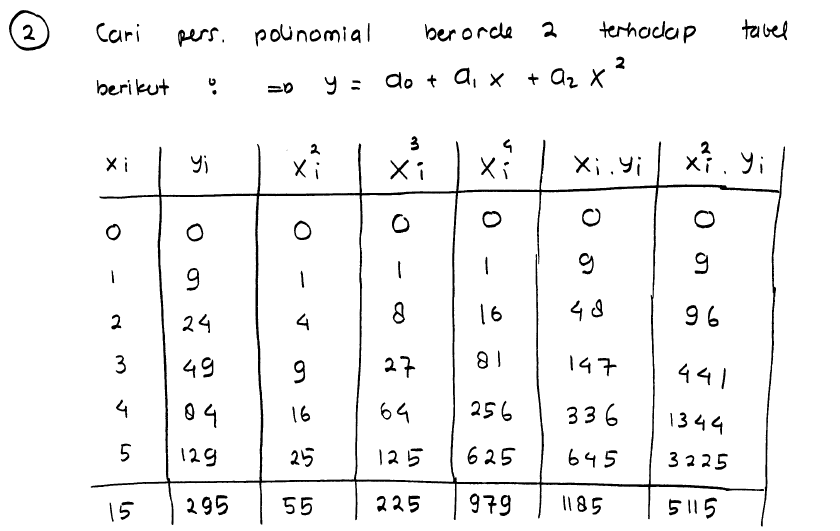 2 Cari pers. polinomial berorde 2 terhadap tabel
berikut : => y = a₀ + a₁ x + a₂ x²
xi yi xi² xi³ xi⁴ xi.yi xi².yi
0 0 0 0 0 0 0
1 9 1 1 1 9 9
2 24 4 8 16 48 96
3 49 9 27 81 147 441
4 84 16 64 256 336 1344
5 129 25 125 625 645 3225
15 295 55 225 979 1185 5115